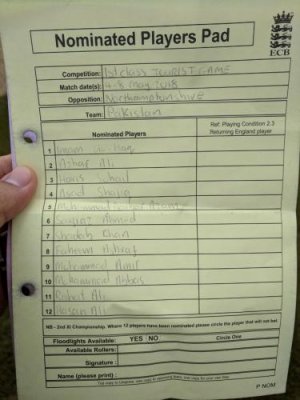 ECB
Nominated Players Pad
Competition: 1st class TOURIST GAME
Match date(s): 4-8 May 2018
Opposition: Northamptonshire
Team: Pakistan
Nominated Players
Ref: Playing Condition 2.3
Returning England player
1 Imam ul-Haq
2 Azhar Ali
3 Haris Sohail
4 Asad Shafiq
5
6 Sarfraz Ahmed
7 Shadab Khan
8 Faheem Ashraf
9 Mohammad Amir
10 Mohammad Abbas
11 Rahat Ali
12 Hasan Ali
NB - 2nd XI Championship. Where 12 players have been nominated please circle the player that will not bat.
Floodlights Available: YES NO Circle One
Available Rollers:
Signature:
Name (please print):
P NOM